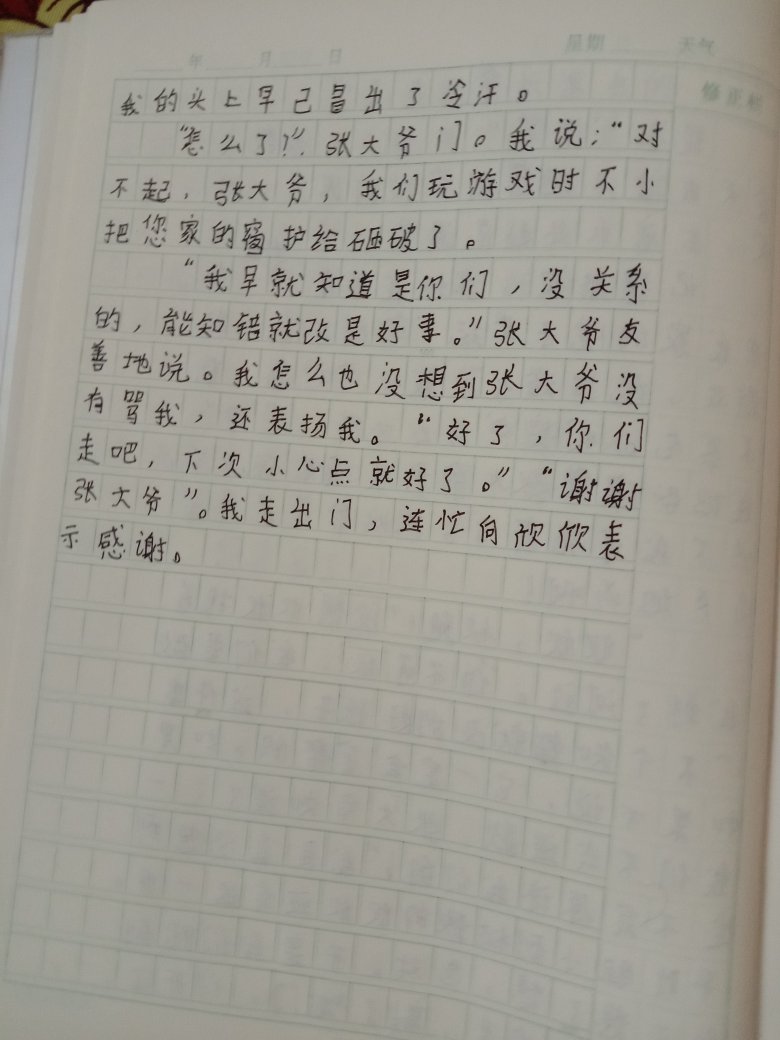 年 月 日 星期 天气
我的头上早己冒出了冷汗。
“怎么了?”张大爷门。我说:“对
不起,张大爷,我们玩游戏时不小
把您家的窗护给砸破了。
“我早就知道是你们,没关系
的,能知错就改是好事。”张大爷友
善地说。我怎么也没想到张大爷没
有骂我,还表扬我。“好了,你们
走吧,下次小心点就好了。”“谢谢
张大爷”。我走出门,连忙向欣欣表
示感谢。